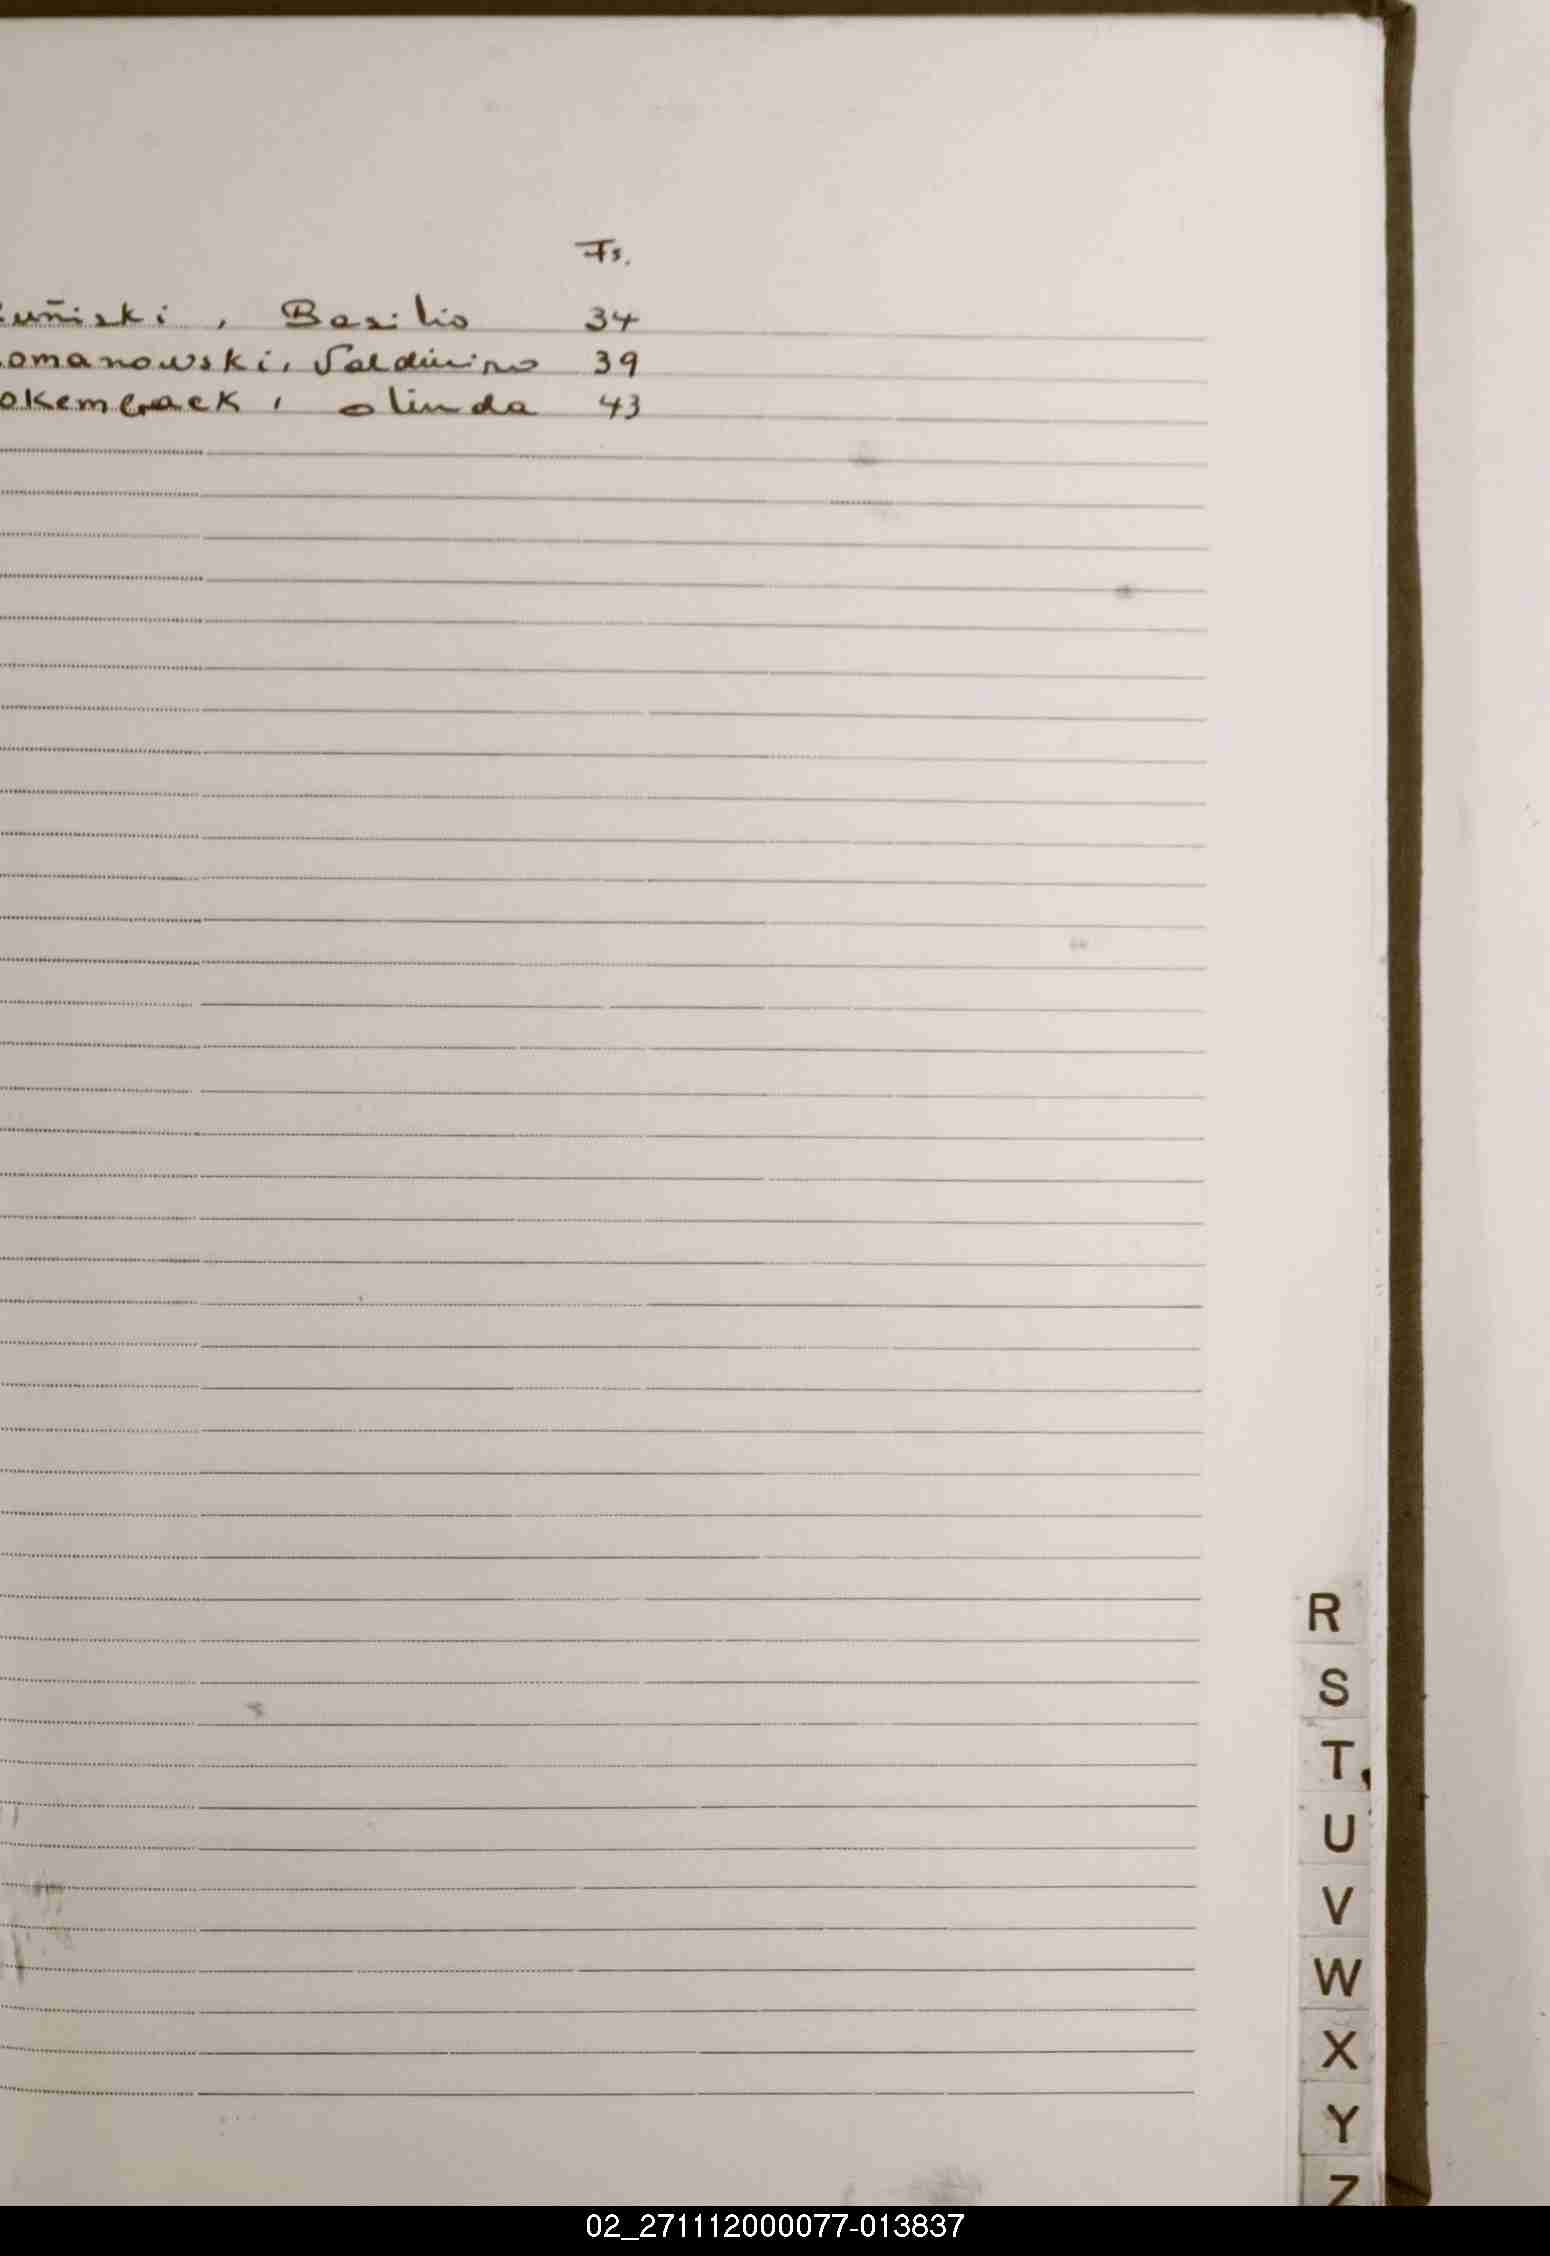 Fs.
uñiski, Basilio 34
omanowski, Valdivino 39
okemback, olinda 43
R
S
T
U
V
W
X
Y
Z
02_271112000077-013837